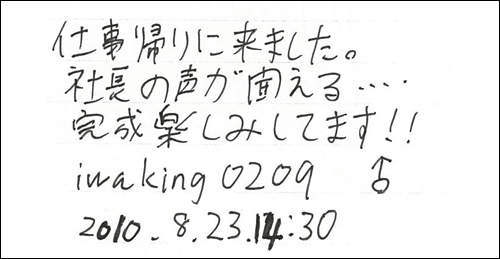 仕事帰りに来ました。
社長の声が聞える‥‥
完成楽しみしてます!!
iwaking 0209 ♂
2010.8.23.14:30